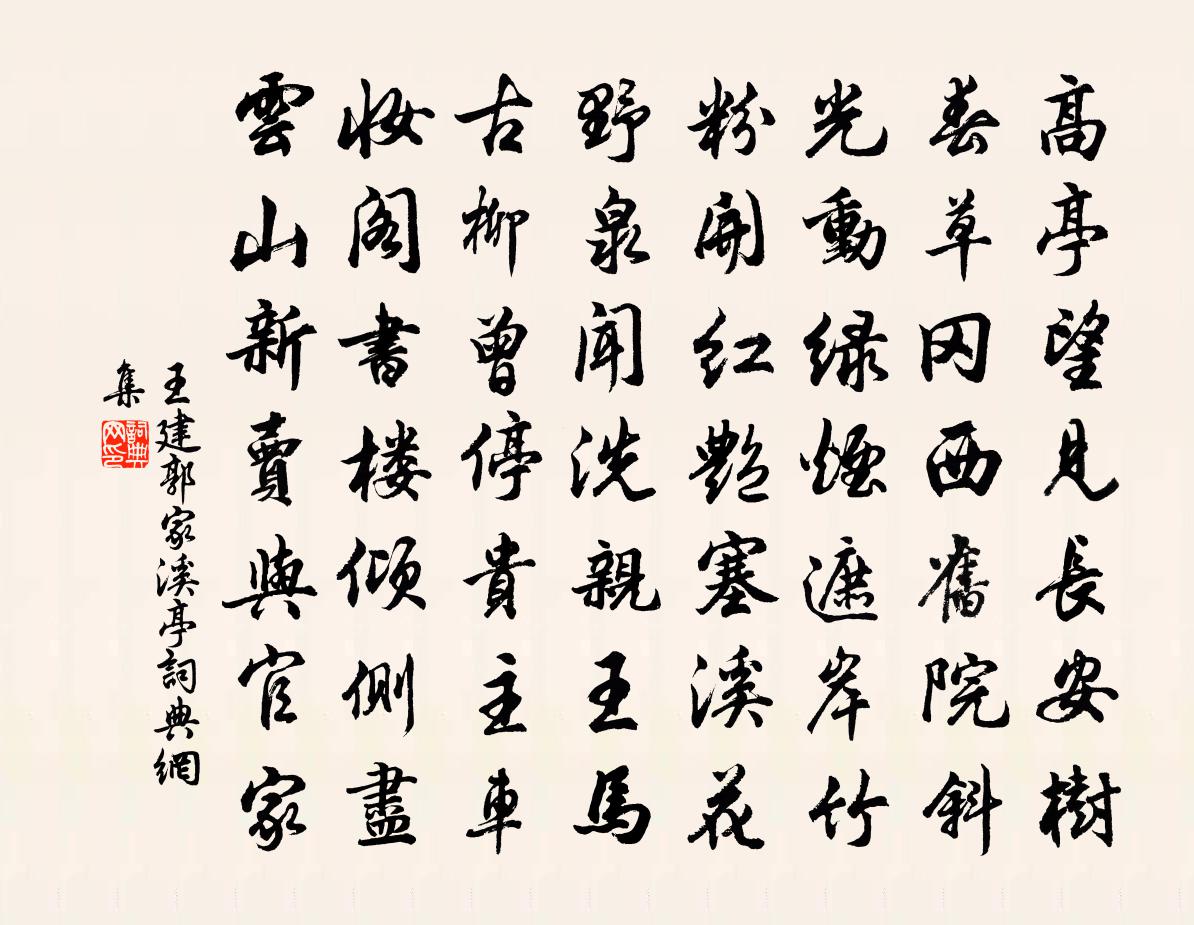 高亭望見長安樹
春草冈西舊院斜
光動緑煙遮岸竹
粉開紅艷塞溪花
野泉聞洗親王馬
古柳曾停貴主車
妝阁書楼倾側盡
雲山新賣與官家
王建郭家溪亭詞典網
集
詞典网印